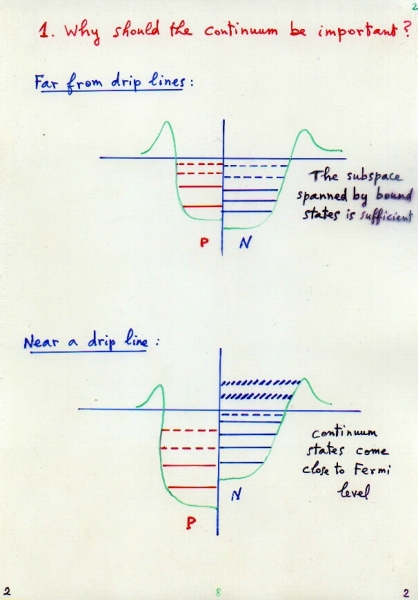 2
1. Why should the continuum be important?
Far from drip lines:
The subspace
spanned by bound
states is sufficient
P N
Near a drip line:
continuum
states come
close to Fermi
level
N
P
2 8 2